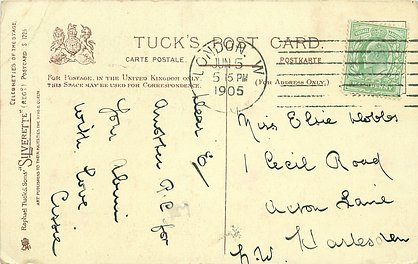 TUCK'S POST CARD.
CARTE POSTALE.
POSTKARTE
FOR POSTAGE, IN THE UNITED KINGDOM ONLY,
THIS SPACE MAY BE USED FOR CORRESPONDENCE.
(FOR ADDRESS ONLY.)
LONDON, W
JUN 5
5 15 PM
1905
CELEBRITIES OF THE STAGE.
Raphael Tuck & Sons' "SILVERETTE" (REGD.) POSTCARD S 1251
ART PUBLISHERS TO THEIR MAJESTIES THE KING & QUEEN
Dear E/
Another P.C. for
you
With love
Cissie
Miss Elsie Hobbs
1 Cecil Road
Acton Lane
Harlesden
N.W.